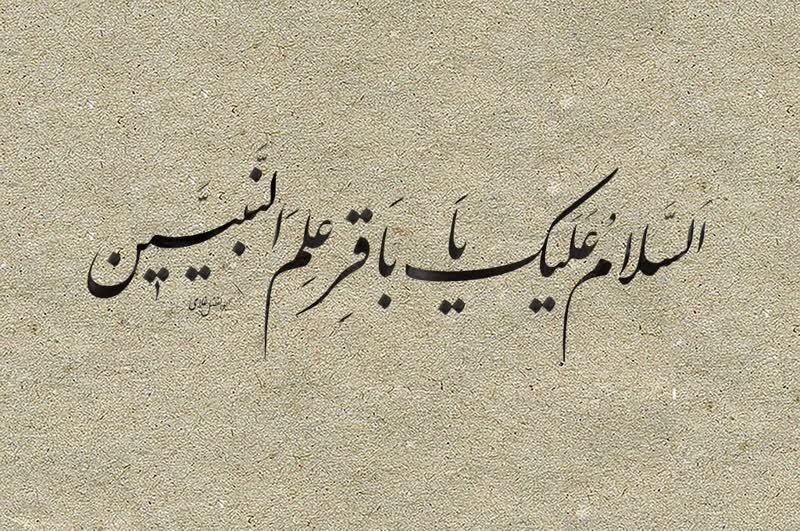 اَلسَّلامُ عَلَیَکَ یَا بَاقِرِ عِلمِ اَلنَّبیّین